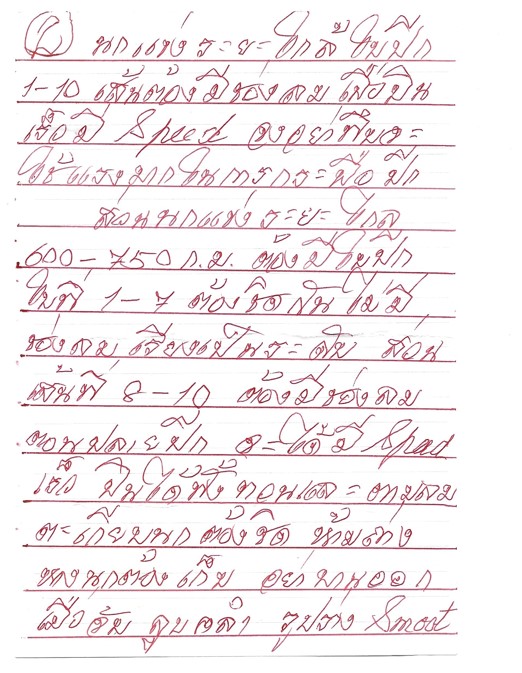 ② นกแข่งระยะใกล้ ใบปีก
1-10 เส้นต้องมีช่องลม เมื่อบิน
เร็วมี Speed
ใช้แรงมากในการกระพือปีก
ส่วนนกแข่งระยะไกล
600-750 ก.ม. ต้องมีใบปีก
ใบที่ 1-7 ต้องชิดกันไม่มี
ช่องลม เรียงเป็นระดับ ส่วน
เส้นที่ 8-10 ต้องมีช่องลม
ตอนปลายปีก จะได้มี Spead
เร็ว บินได้ทั้งทวนและตามลม
ตะเกียบนกต้องชิด ห้ามห่าง
หางนกต้องเก็บ อย่าบานออก
เมื่อจับ ลูบคลำ รูปร่าง Smoot